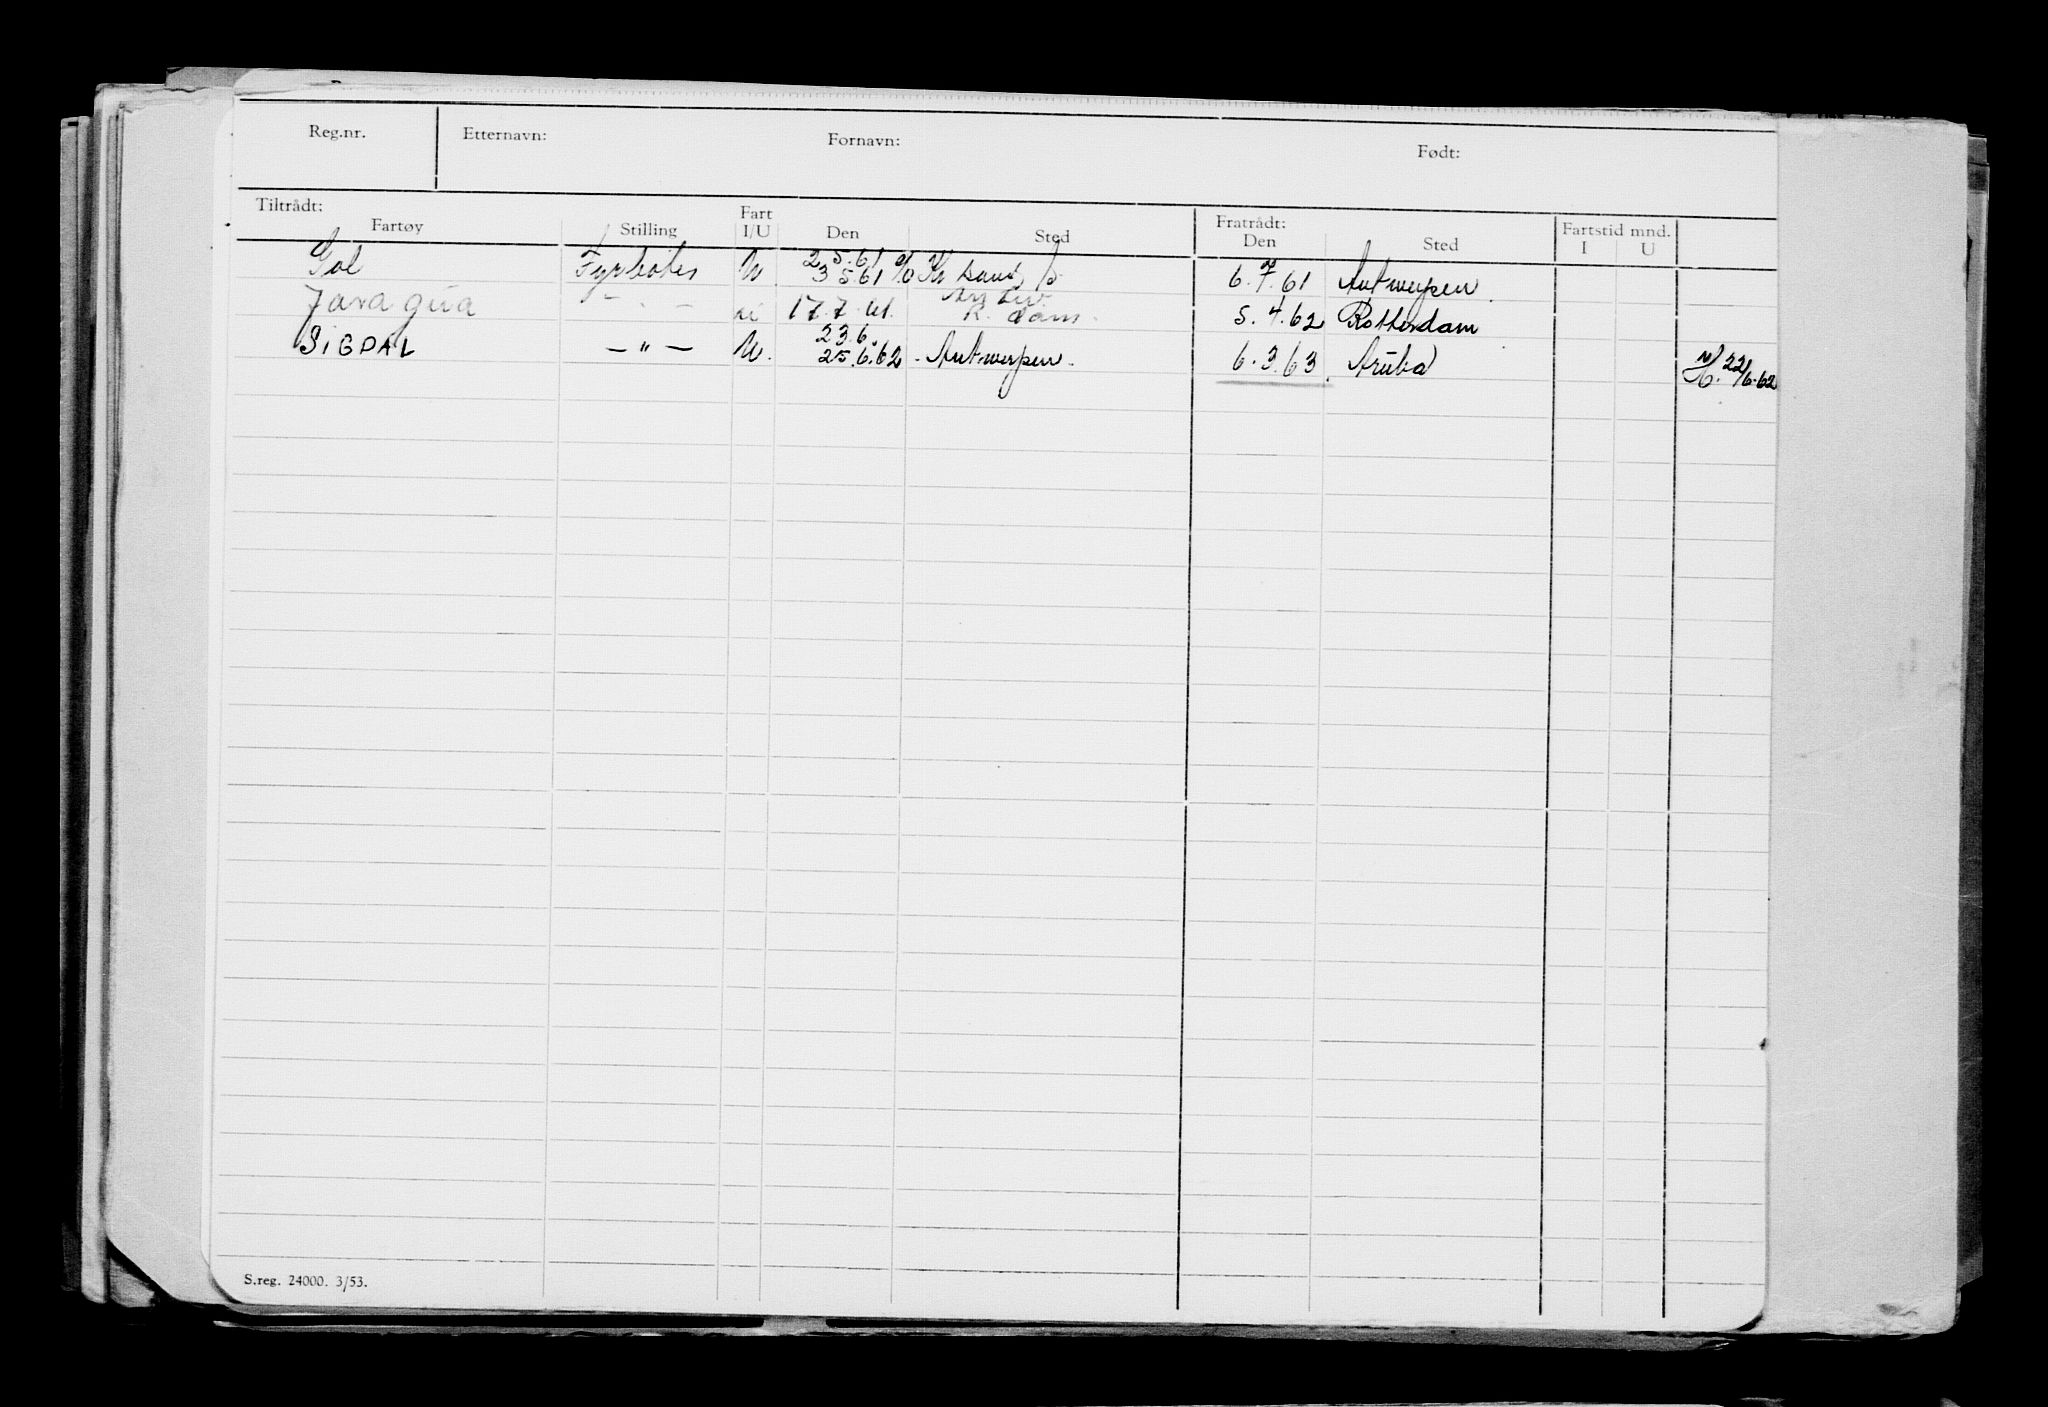 Reg.nr. Etternavn: Fornavn: Født:
Tiltrådt: Fratrådt:
Fartøy Stilling Fart I/U Den Sted Den Sted Fartstid mnd. I U
Gol Fyrbøter U 2 5.61 3 5 61 Kr sand 6.7.61 Antwerpen
Jaragua - " - 17.7.61. R. dam. 5.4.62 Rotterdam
SIGDAL - " - U. 23.6. 25.6.62 Antwerpen. 6.3.63. Aruba 22/6.62
S.reg. 24000. 3/53.